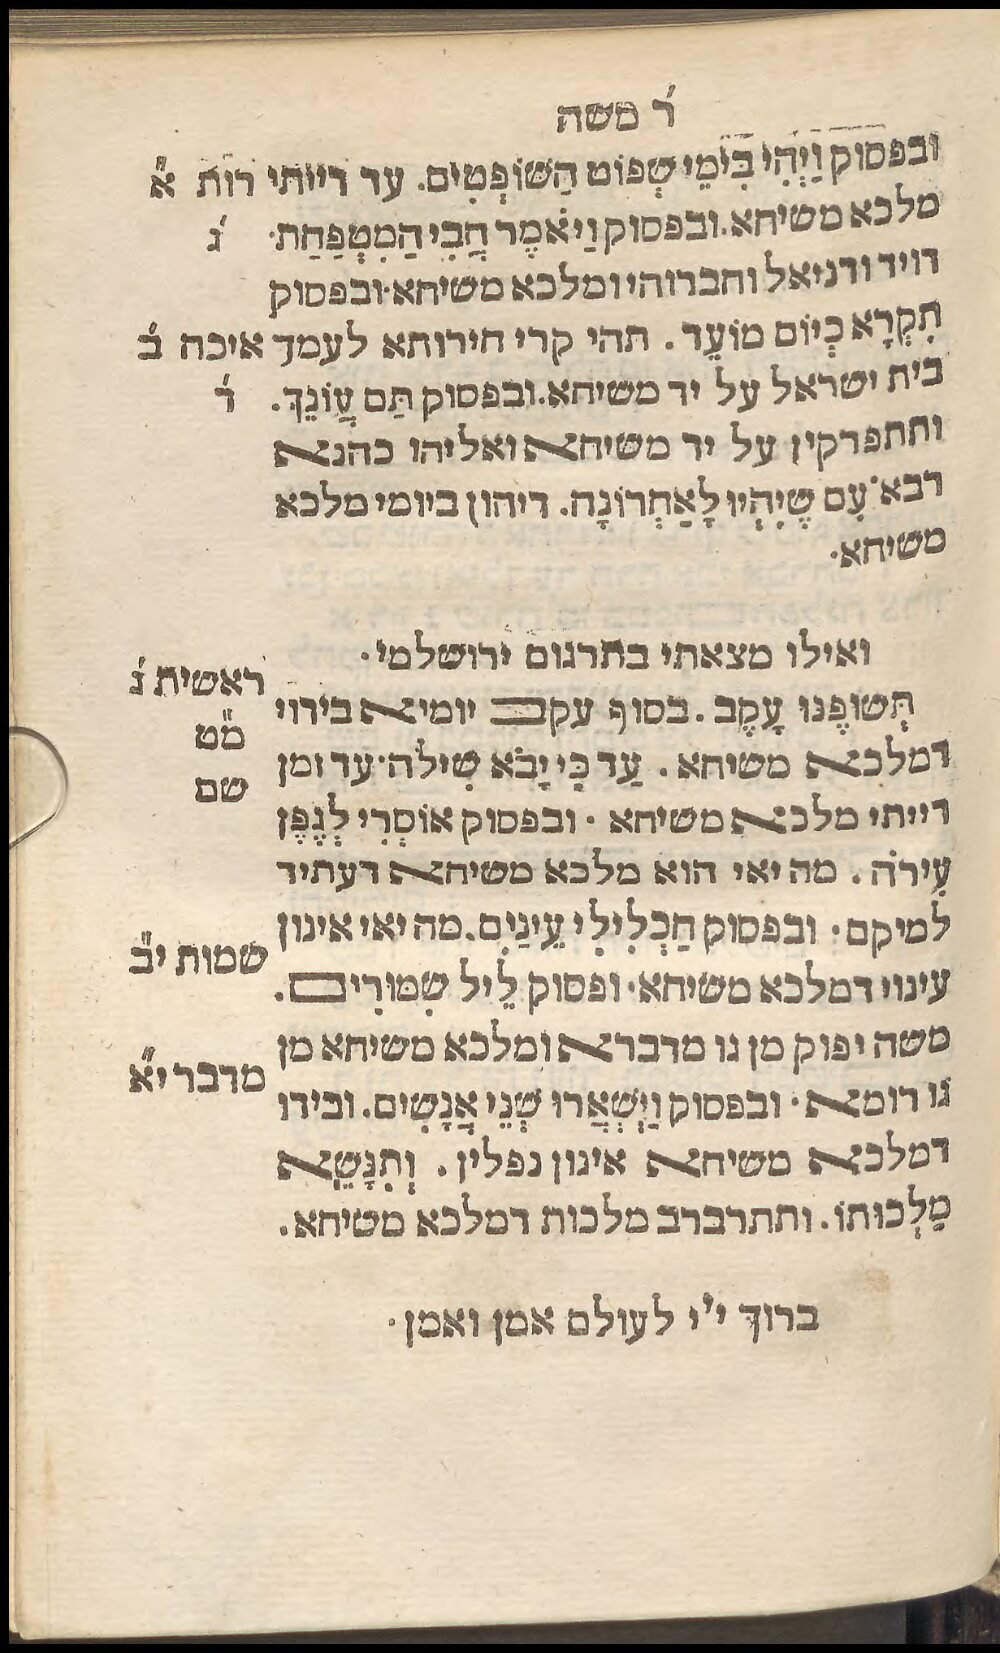 ר׳ משה
ובפסוק וַיְהִי בִּימֵי שְׁפוֹט הַשּׁוֹפְטִים. עד דייתי רות א״
מלכא משיחא. ובפסוק וַיֹּאמֶר הָבִי הַמִּטְפַּחַת. ג׳
דויד ודניאל וחברוהי ומלכא משיחא. ובפסוק
תִּקְרָא כְיוֹם מוֹעֵד. תהי קרי חירותא לעמך איכה ב׳
בית ישראל על יד משיחא. ובפסוק תַּם עֲוֹנֵךְ. ד׳
ותתפרקין על יד משיחא ואליהו כהנא
רבא. עִם שֶׁיִּהְיוּ לָאַחֲרוֹנָה. דיהון ביומי מלכא
משיחא.
ואילו מצאתי בתרגום ירושלמי.
ראשית ג׳
תְּשׁוּפֶנּוּ עָקֵב. בסוף עקב יומיא בידוי
מ״ט
דמלכא משיחא. עַד כִּי יָבֹא שִׁילֹה. עד זמן
שם
דייתי מלכא משיחא. ובפסוק אוֹסְרִי לְגֶפֶן
עִירֹה. מה יאי הוא מלכא משיחא דעתיד
למיקם. ובפסוק חַכְלִילִי עֵינַיִם. מה יאי אינון
שמות י״ב
עינוי דמלכא משיחא. ופסוק לֵיל שִׁמּוּרִים.
משה יפוק מן גו מדברא ומלכא משיחא מן
מדבר י״א
גו רומא. ובפסוק וַיִּשָּׁאֲרוּ שְׁנֵי אֲנָשִׁים. ובידו
דמלכא משיחא אינון נפלין. וְתִנַּשֵּׂא
מַלְכוּתוֹ. ותתרברב מלכות דמלכא משיחא.
ברוך י׳י לעולם אמן ואמן.